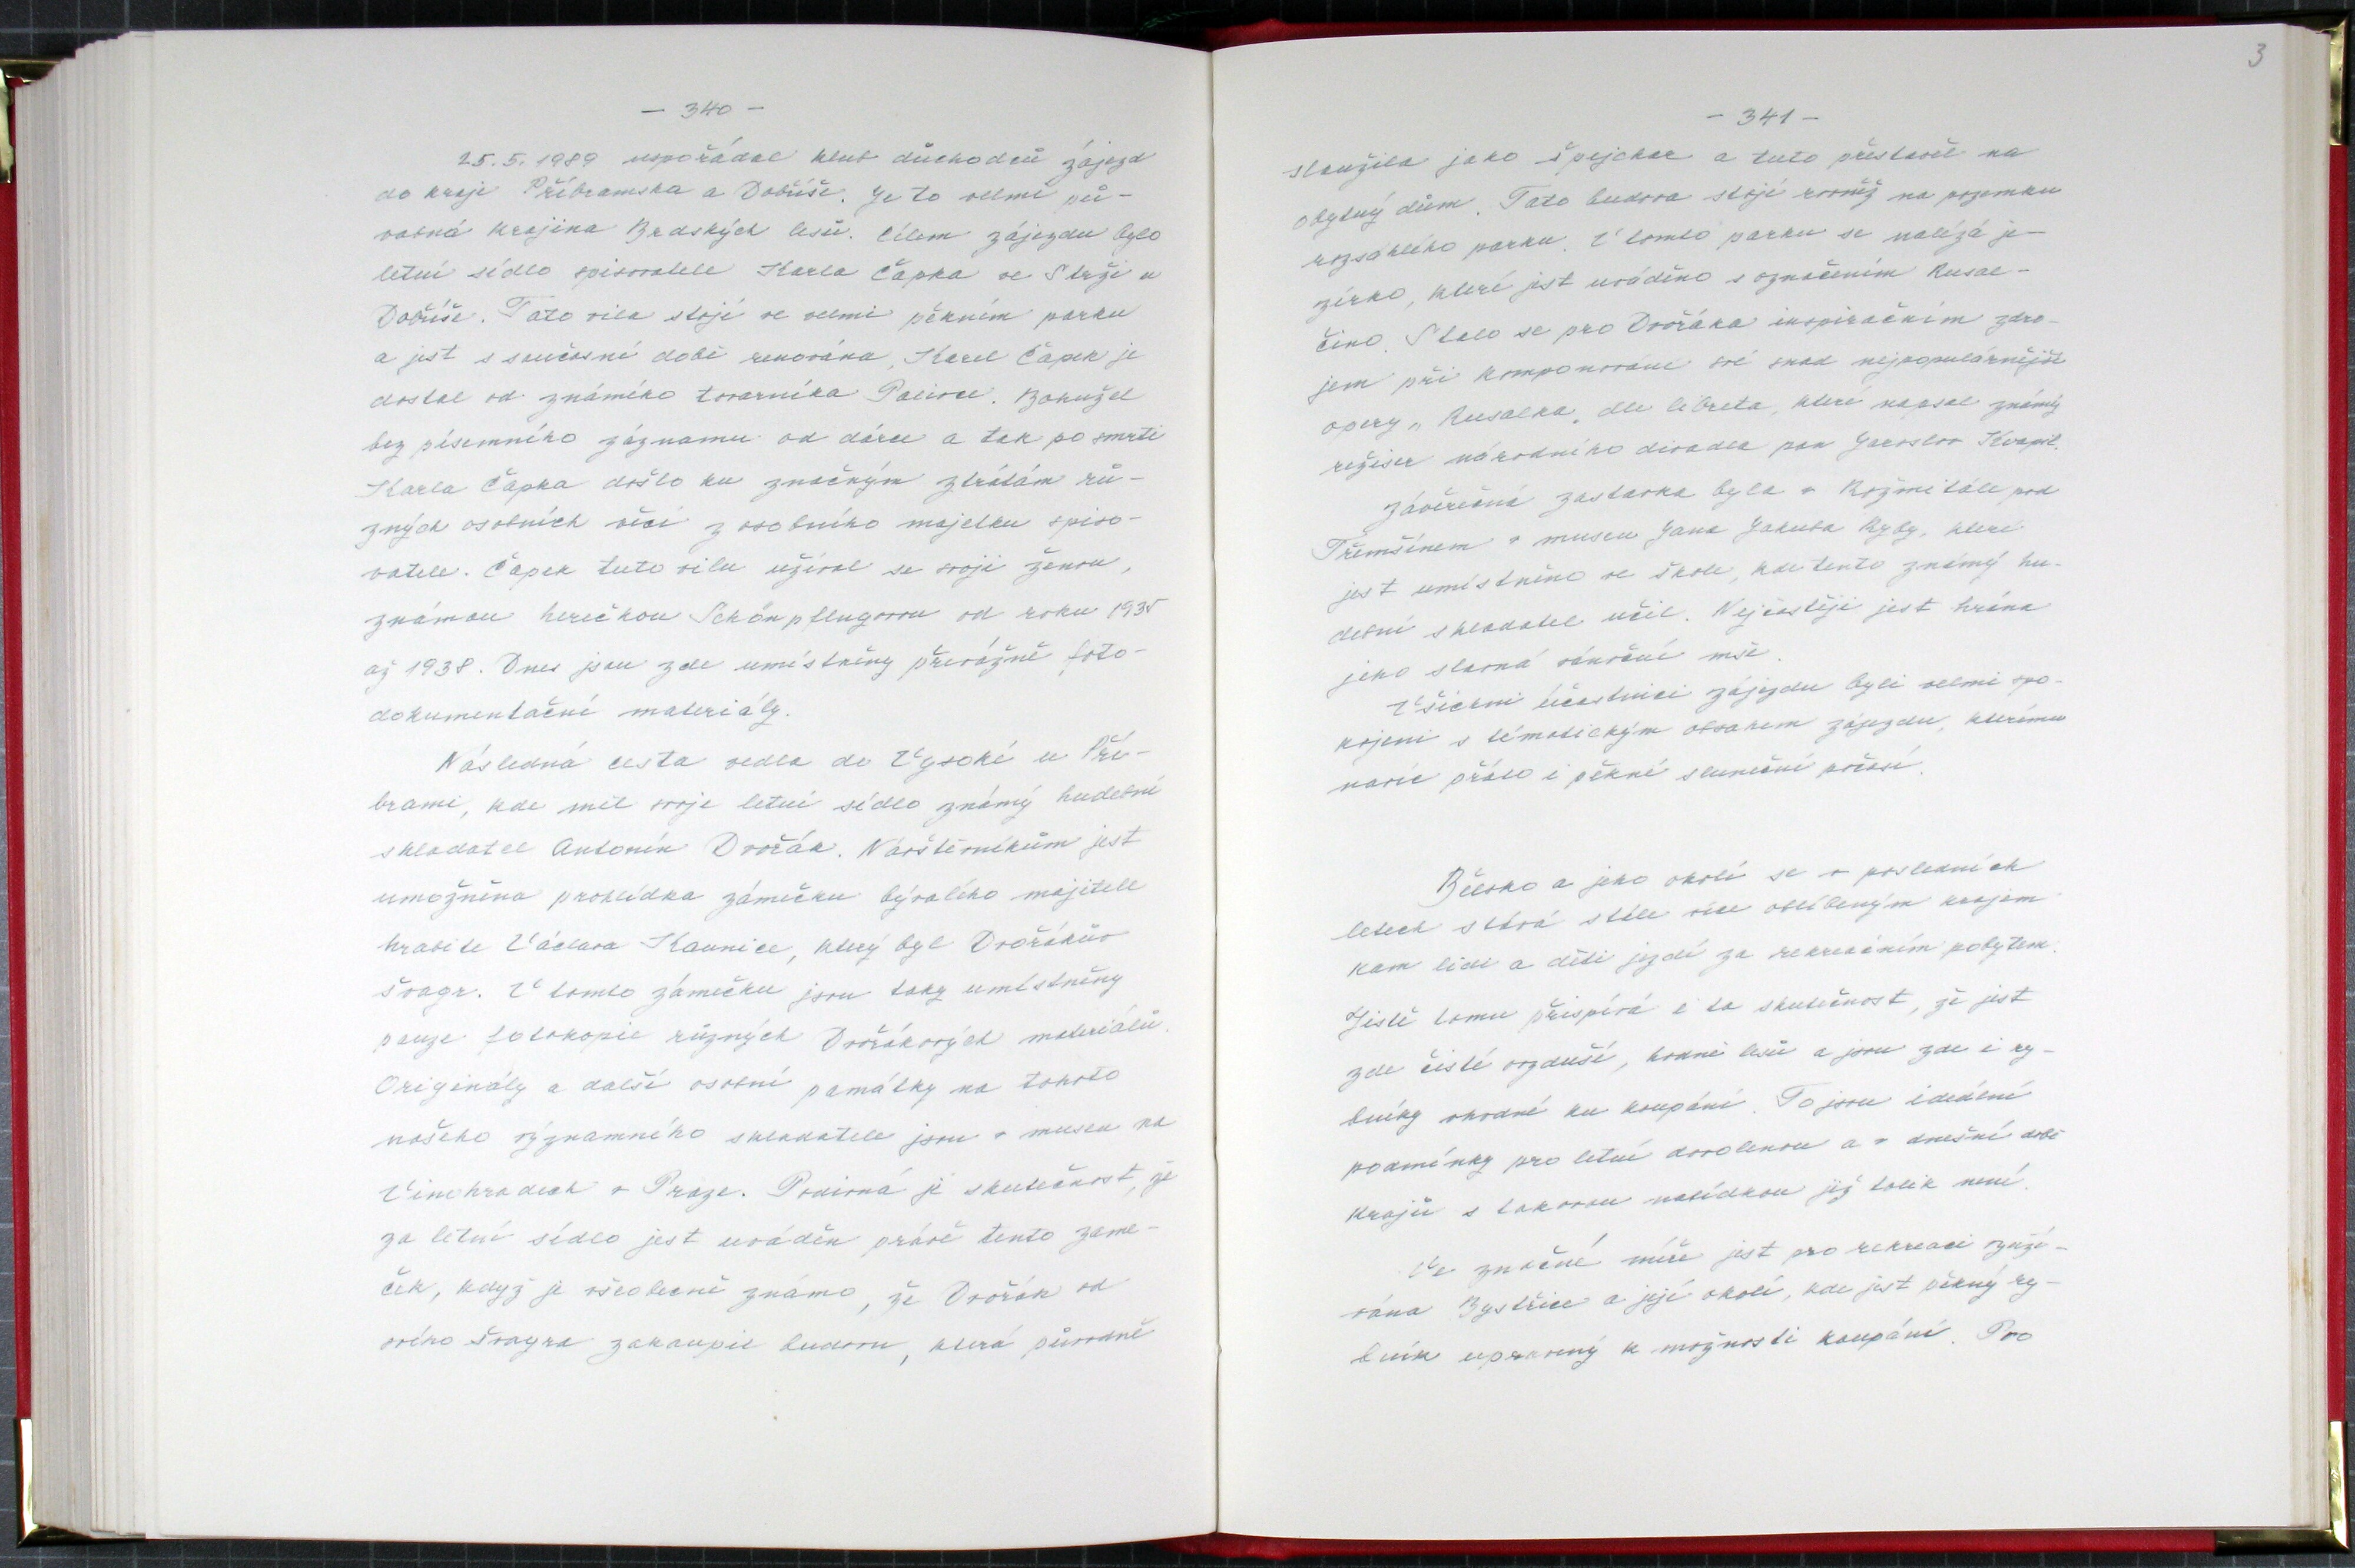 - 340 -
25.5.1989 uspořádal klub důchodců zájezd
do kraje Příbramska a Dobříše. Je to velmi pů-
vabná krajina Brdských lesů. Cílem zájezdu bylo
letní sídlo spisovatele Karla Čapka ve Strži u
Dobříše. Tato vila stojí ve velmi pěkném parku
a jest v současné době renována, Karel Čapek je
dostal od známého továrníka Palivce. Bohužel
bez písemného záznamu od dárce a tak po smrti
Karla Čapka došlo ku značným ztrátám rů-
zných osobních věcí z osobního majetku spiso-
vatele. Čapek tuto vilu užíval se svojí ženou,
známou herečkou Schönpflugovou od roku 1935
až 1938. Dnes jsou zde umístněny převážně foto-
dokumentační materiály.
Následná cesta vedla do Vysoké u Pří-
brami, kde měl svoje letní sídlo známý hudební
skladatel Antonín Dvořák. Návštěvníkům jest
umožněna prohlídka zámečku bývalého majitele
hraběte Václava Kaunice, který byl Dvořákův
švagr. V tomto zámečku jsou taky umístněny
pouze fotokopie různých Dvořákových materiálů.
Originály a další osobní památky na tohoto
našeho významného skladatele jsou v museu na
Vinohradech v Praze. Podivná je skutečnost, že
za letní sídlo jest uváděn právě tento zame-
ček, když je všeobecně známo, že Dvořák od
svého švagra zakoupil budovu, která původně
3
- 341 -
sloužila jako špejchar a tuto přestavěl na
obytný dům. Tato budova stojí rovněž na pozemku
rozsáhlého parku. V tomto parku se nalézá je-
zírko, které jest uváděno s označením Rusal-
čino. Stalo se pro Dvořáka inspiračním zdro-
jem při komponování své snad nejpopulárnější
opery „Rusalka„ dle libreta, které napsal známý
režiser národního divadla pan Jaroslav Kvapil.
Závěrečná zastávka byla v Rožmitále pod
Třemšínem v museu Jana Jakuba Ryby, které
jest umístněno ve škole, kde tento známý hu-
dební skladatel učil. Nejčastěji jest hrána
jeho slavná vánoční mše.
Všichni účastníci zájezdu byli velmi spo-
kojeni s tématickým obsahem zájezdu, kterému
navíc přálo i pěkné sluneční počasí.
Bělsko a jeho okolí se v posledních
letech stává stále více oblíbeným krajem
kam lidi a děti jezdí za rekreačním pobytem.
Jistě tomu přispívá i ta skutečnost, že jest
zde čisté vzduší, hodně lesů a jsou zde i ry-
bníky vhodné ku koupání. To jsou ideální
podmínky pro letní dovolenou a v dnešní době
krajů s takovou nabídkou již tolik není.
Ve značné míře jest pro rekreaci využí-
vána Bystřice a její okolí, kde jest pěkný ry-
bník upravený k možnosti koupání. Pro